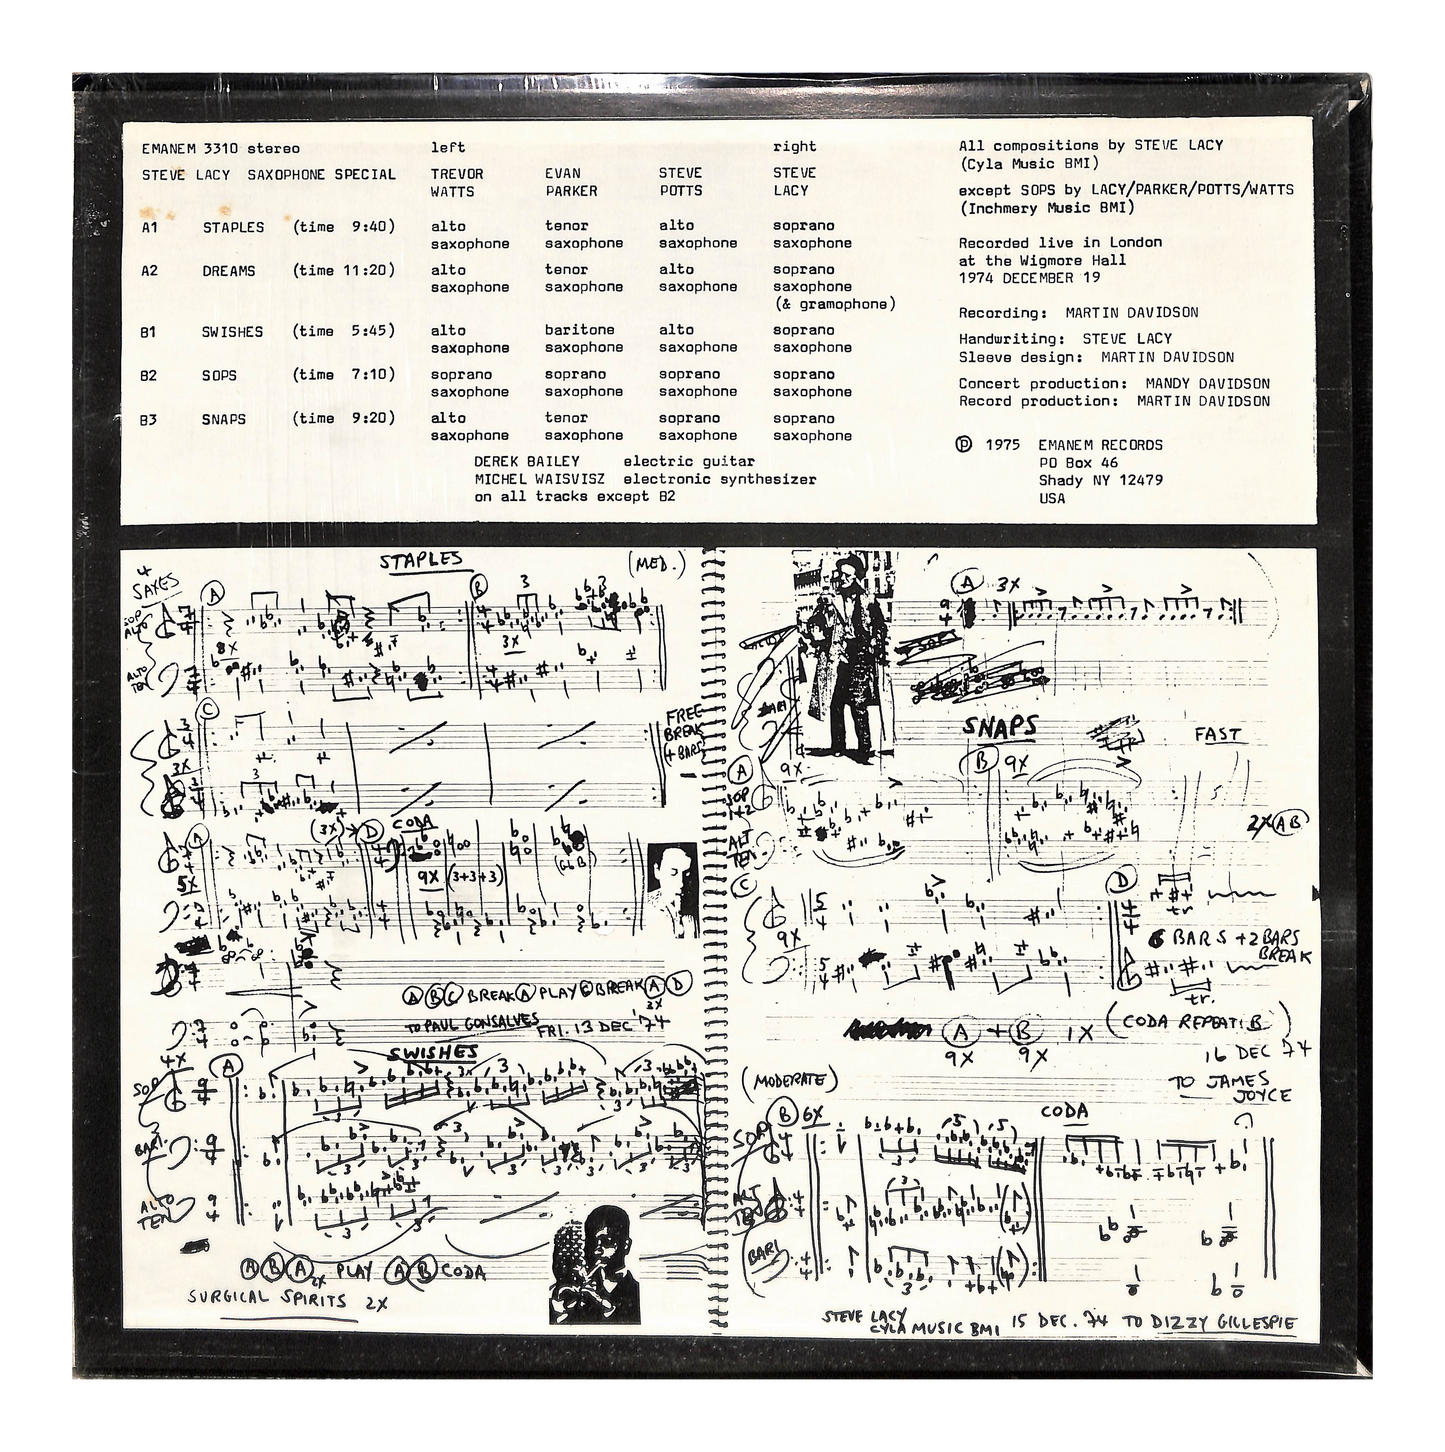 EMANEM 3310 stereo left right
STEVE LACY SAXOPHONE SPECIAL TREVOR WATTS EVAN PARKER STEVE POTTS STEVE LACY
A1 STAPLES (time 9:40) alto saxophone tenor saxophone alto saxophone soprano saxophone
A2 DREAMS (time 11:20) alto saxophone tenor saxophone alto saxophone soprano saxophone (& gramophone)
B1 SWISHES (time 5:45) alto saxophone baritone saxophone alto saxophone soprano saxophone
B2 SOPS (time 7:10) soprano saxophone soprano saxophone soprano saxophone soprano saxophone
B3 SNAPS (time 9:20) alto saxophone tenor saxophone soprano saxophone soprano saxophone
DEREK BAILEY electric guitar
MICHEL WAISVISZ electronic synthesizer
on all tracks except B2
All compositions by STEVE LACY
(Cyla Music BMI)
except SOPS by LACY/PARKER/POTTS/WATTS
(Inchmery Music BMI)
Recorded live in London
at the Wigmore Hall
1974 DECEMBER 19
Recording: MARTIN DAVIDSON
Handwriting: STEVE LACY
Sleeve design: MARTIN DAVIDSON
Concert production: MANDY DAVIDSON
Record production: MARTIN DAVIDSON
℗ 1975 EMANEM RECORDS
PO Box 46
Shady NY 12479
USA
STAPLES (MED.)
4 SAXES
A
B
SOP
ALTO
8X
3X
ALTO
TEN
C
3X
FREE
BREAK
4 BARS
A
5X
(3X)
D
CODA
9X (3+3+3)
(GbB)
A B C BREAK A PLAY C BREAK A D
3X
TO PAUL GONSALVES FRI. 13 DEC '74
SWISHES
4X
A
SOP
BARI.
ALTO
TEN
A B A 2X PLAY A B CODA
SURGICAL SPIRITS 2X
A 3X
SNAPS FAST
A 9X
B 9X
SOP
1+2
ALT
TEN
2X A B
C
9X
D
tr.
6 BARS + 2 BARS
BREAK
tr.
A + B 1X (CODA REPEAT: B)
9X 9X
16 DEC 74
TO JAMES
JOYCE
(MODERATE)
B 6X
CODA
SOP
ALT
TEN
BARI
STEVE LACY
CYLA MUSIC BMI
15 DEC. 74 TO DIZZY GILLESPIE